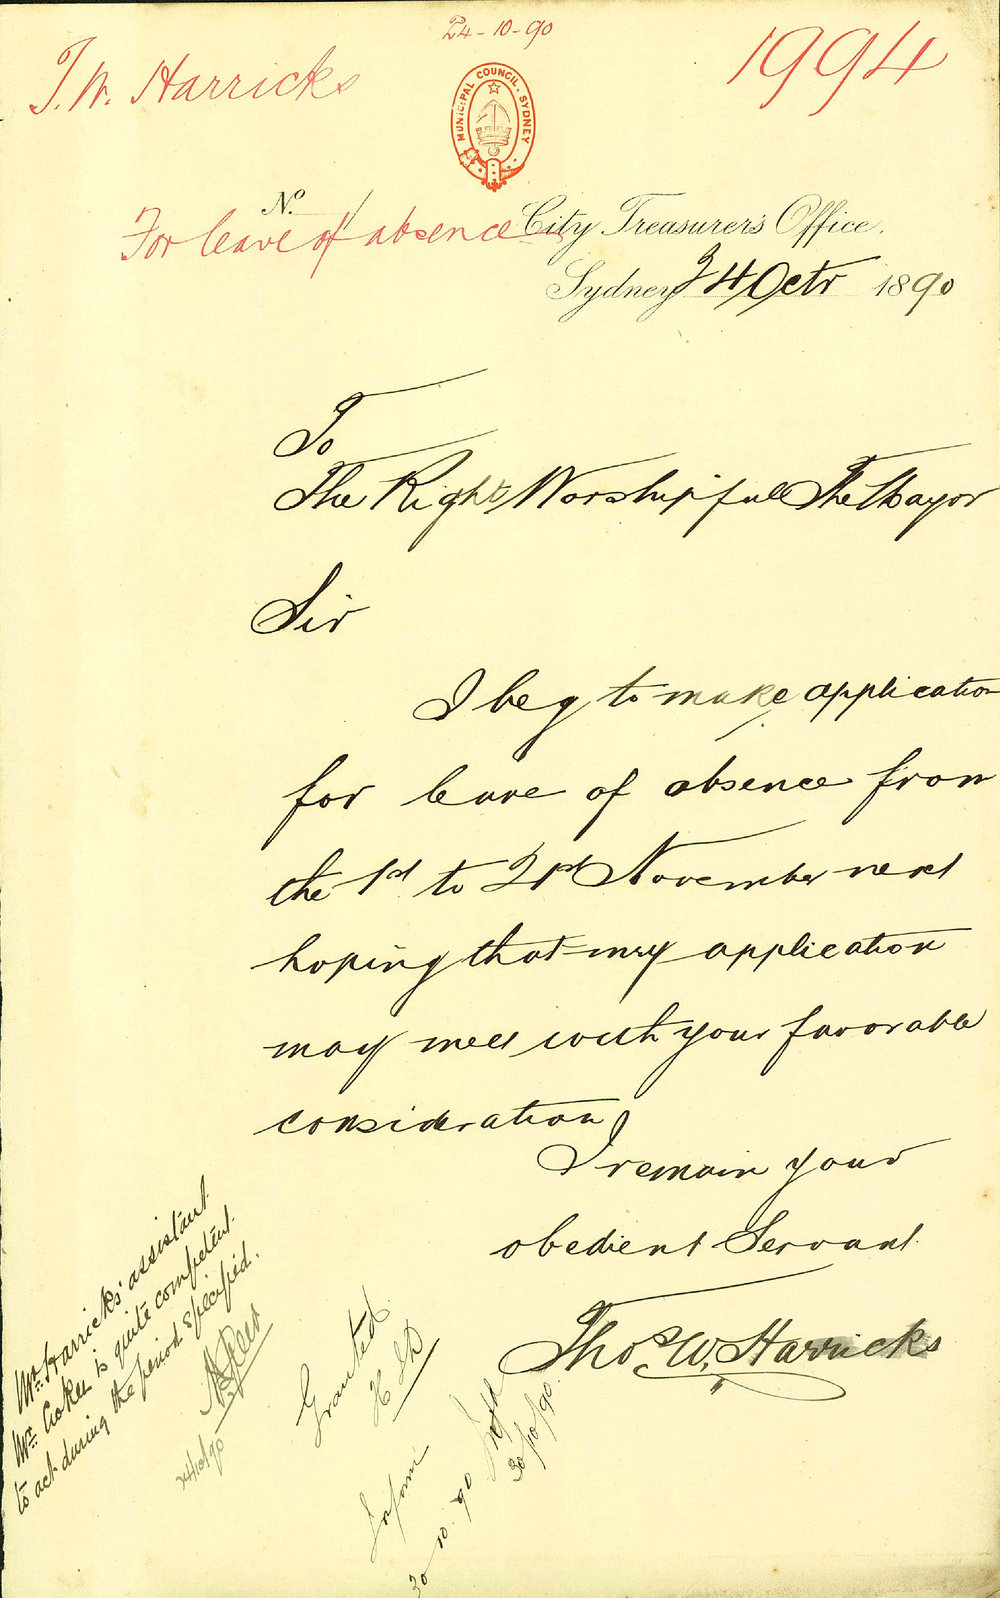 24-10-90
T.W. Harricks
1994
MUNICIPAL COUNCIL. SYDNEY
No.
For leave of absence
City Treasurer's Office.
Sydney 24 Octr 1890
To
The Right Worshipfull The Mayor
Sir
I beg to make application
for leave of absence from
the 1st to 21st November next
hoping that my application
may meet with your favorable
consideration
I remain your
obedient Servant
Thos W. Harricks
Mr. Harricks' assistant
Mr. is quite competent
to act during the period specified.
24/10/90
Granted
Inform
30-10-90
30/10/90